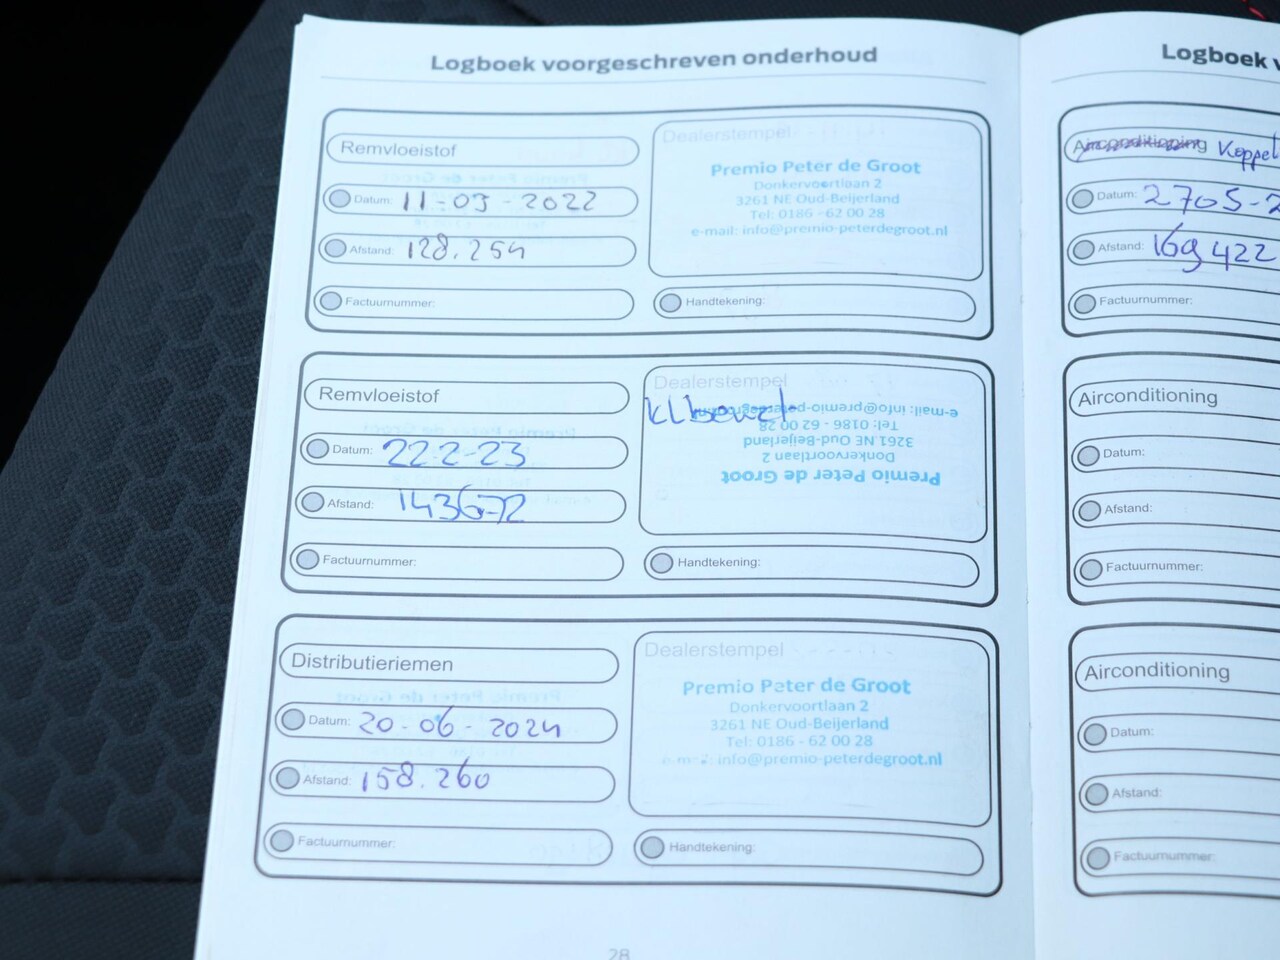 Logboek voorgeschreven onderhoud
Remvloeistof
Datum: 11-03-2022
Afstand: 128.254
Factuurnummer:
Dealerstempel
Premio Peter de Groot
Donkervoortlaan 2
3261 NE Oud-Beijerland
Tel: 0186 - 62 00 28
e-mail: info@premio-peterdegroot.nl
Handtekening:
Remvloeistof
Datum: 22-2-23
Afstand: 143672
Factuurnummer:
Dealerstempel
Premio Peter de Groot
Donkervoortlaan 2
3261 NE Oud-Beijerland
Tel: 0186 - 62 00 28
e-mail: info@premio-peterdegroot.nl
Handtekening:
Distributieriemen
Datum: 20-06-2024
Afstand: 158.260
Factuurnummer:
Dealerstempel
Premio Peter de Groot
Donkervoortlaan 2
3261 NE Oud-Beijerland
Tel: 0186 - 62 00 28
e-mail: info@premio-peterdegroot.nl
Handtekening:
28
Logboek v
Airconditioning Koppel
Datum: 2705-2
Afstand: 169422
Factuurnummer:
Airconditioning
Datum:
Afstand:
Factuurnummer:
Airconditioning
Datum:
Afstand:
Factuurnummer: